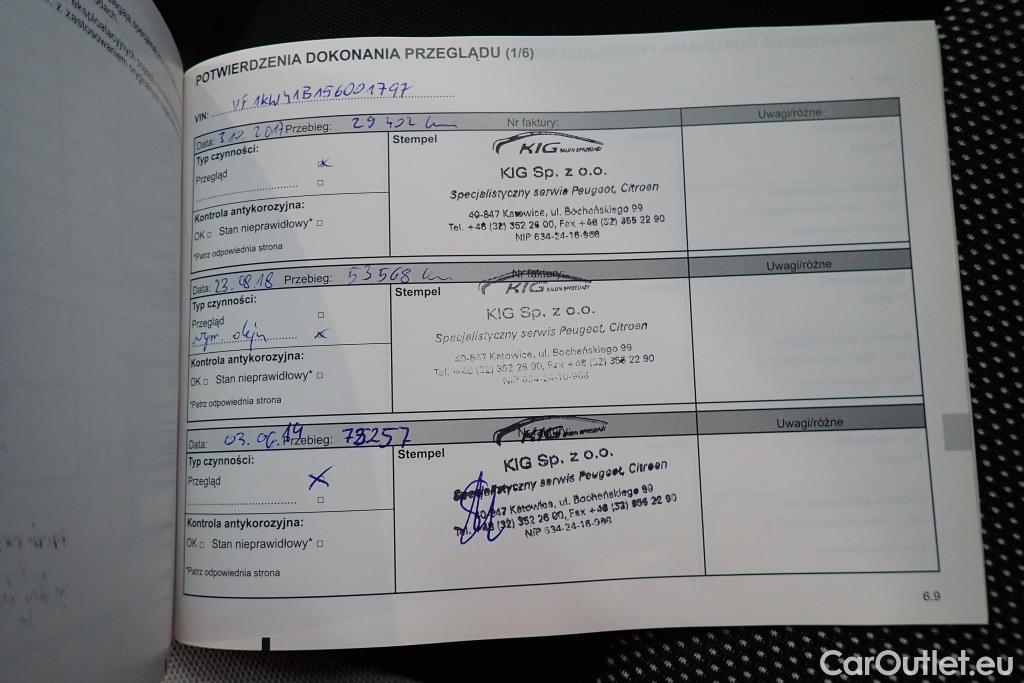 POTWIERDZENIA DOKONANIA PRZEGLĄDU (1/6)
VIN: VF1KW41B156001797
Data: 3.10.2017 Przebieg: 29 402 km Nr faktury: Uwagi/różne
Typ czynności:
Stempel
Przegląd
KIG SALON SPRZEDAŻY
KIG Sp. z o.o.
Specjalistyczny serwis Peugeot, Citroen
40-847 Katowice, ul. Bocheńskiego 99
Tel. +48 (32) 352 26 00, Fax +48 (32) 355 22 90
NIP 634-24-16-988
Kontrola antykorozyjna:
OK □ Stan nieprawidłowy* □
*Patrz odpowiednia strona
Data: 23.08.18 Przebieg: 53568 km Nr faktury: Uwagi/różne
Typ czynności:
Stempel
Przegląd □
wym. oleju x
KIG SALON SPRZEDAŻY
KIG Sp. z o.o.
Specjalistyczny serwis Peugeot, Citroen
40-847 Katowice, ul. Bocheńskiego 99
Tel. +48 (32) 352 26 00, Fax +48 (32) 355 22 90
NIP 634-24-16-988
Kontrola antykorozyjna:
OK □ Stan nieprawidłowy* □
*Patrz odpowiednia strona
Data: 03.06.19 Przebieg: Uwagi/różne
Typ czynności:
Stempel
Przegląd x
KIG Sp. z o.o.
Specjalistyczny serwis Peugeot, Citroen
40-847 Katowice, ul. Bocheńskiego 99
Tel. +48 (32) 352 26 00, Fax +48 (32) 355 22 90
NIP 634-24-16-988
Kontrola antykorozyjna:
OK □ Stan nieprawidłowy* □
*Patrz odpowiednia strona
6.9
CarOutlet.eu